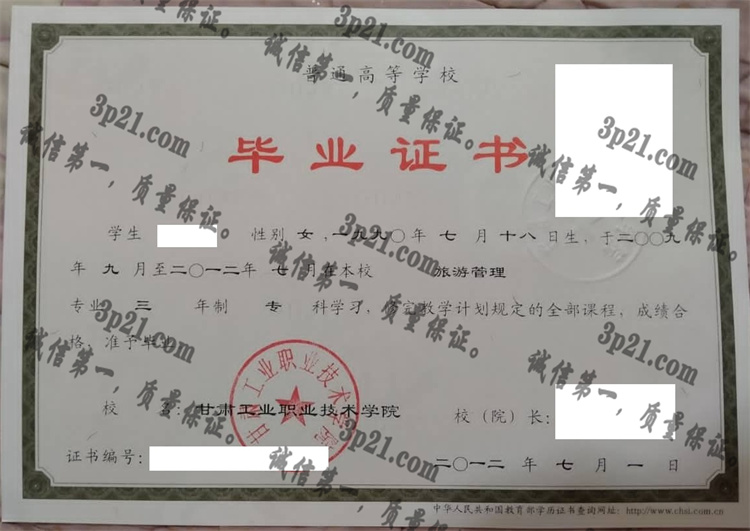 普通高等学校
毕业证书
学生 性别 女，一九九〇年 七 月 十八 日生，于二〇〇九
年 九 月至二〇一二年 七 月在本校 旅游管理
专业 三 年制 专 科学习， 教学计划规定的全部课程，成绩合
格，准予毕业
校 名：甘肃工业职业技术学院 校（院）长：
证书编号： 二〇一二 年 七 月 一 日
中华人民共和国教育部学历证书查询网址：http://www.chsi.com.cn
甘肃工业职业技术学院
3p21.com
诚信第一，质量保证。
3p21.com
诚信第一，质量保证。
3p21.com
诚信第一，质量保证。
3p21.com
诚信第一，质量保证。
3p21.com
诚信第一，质量保证。
3p21.com
诚信第一，质量保证。
3p21.com
诚信第一，质量保证。
3p21.com
诚信第一，质量保证。